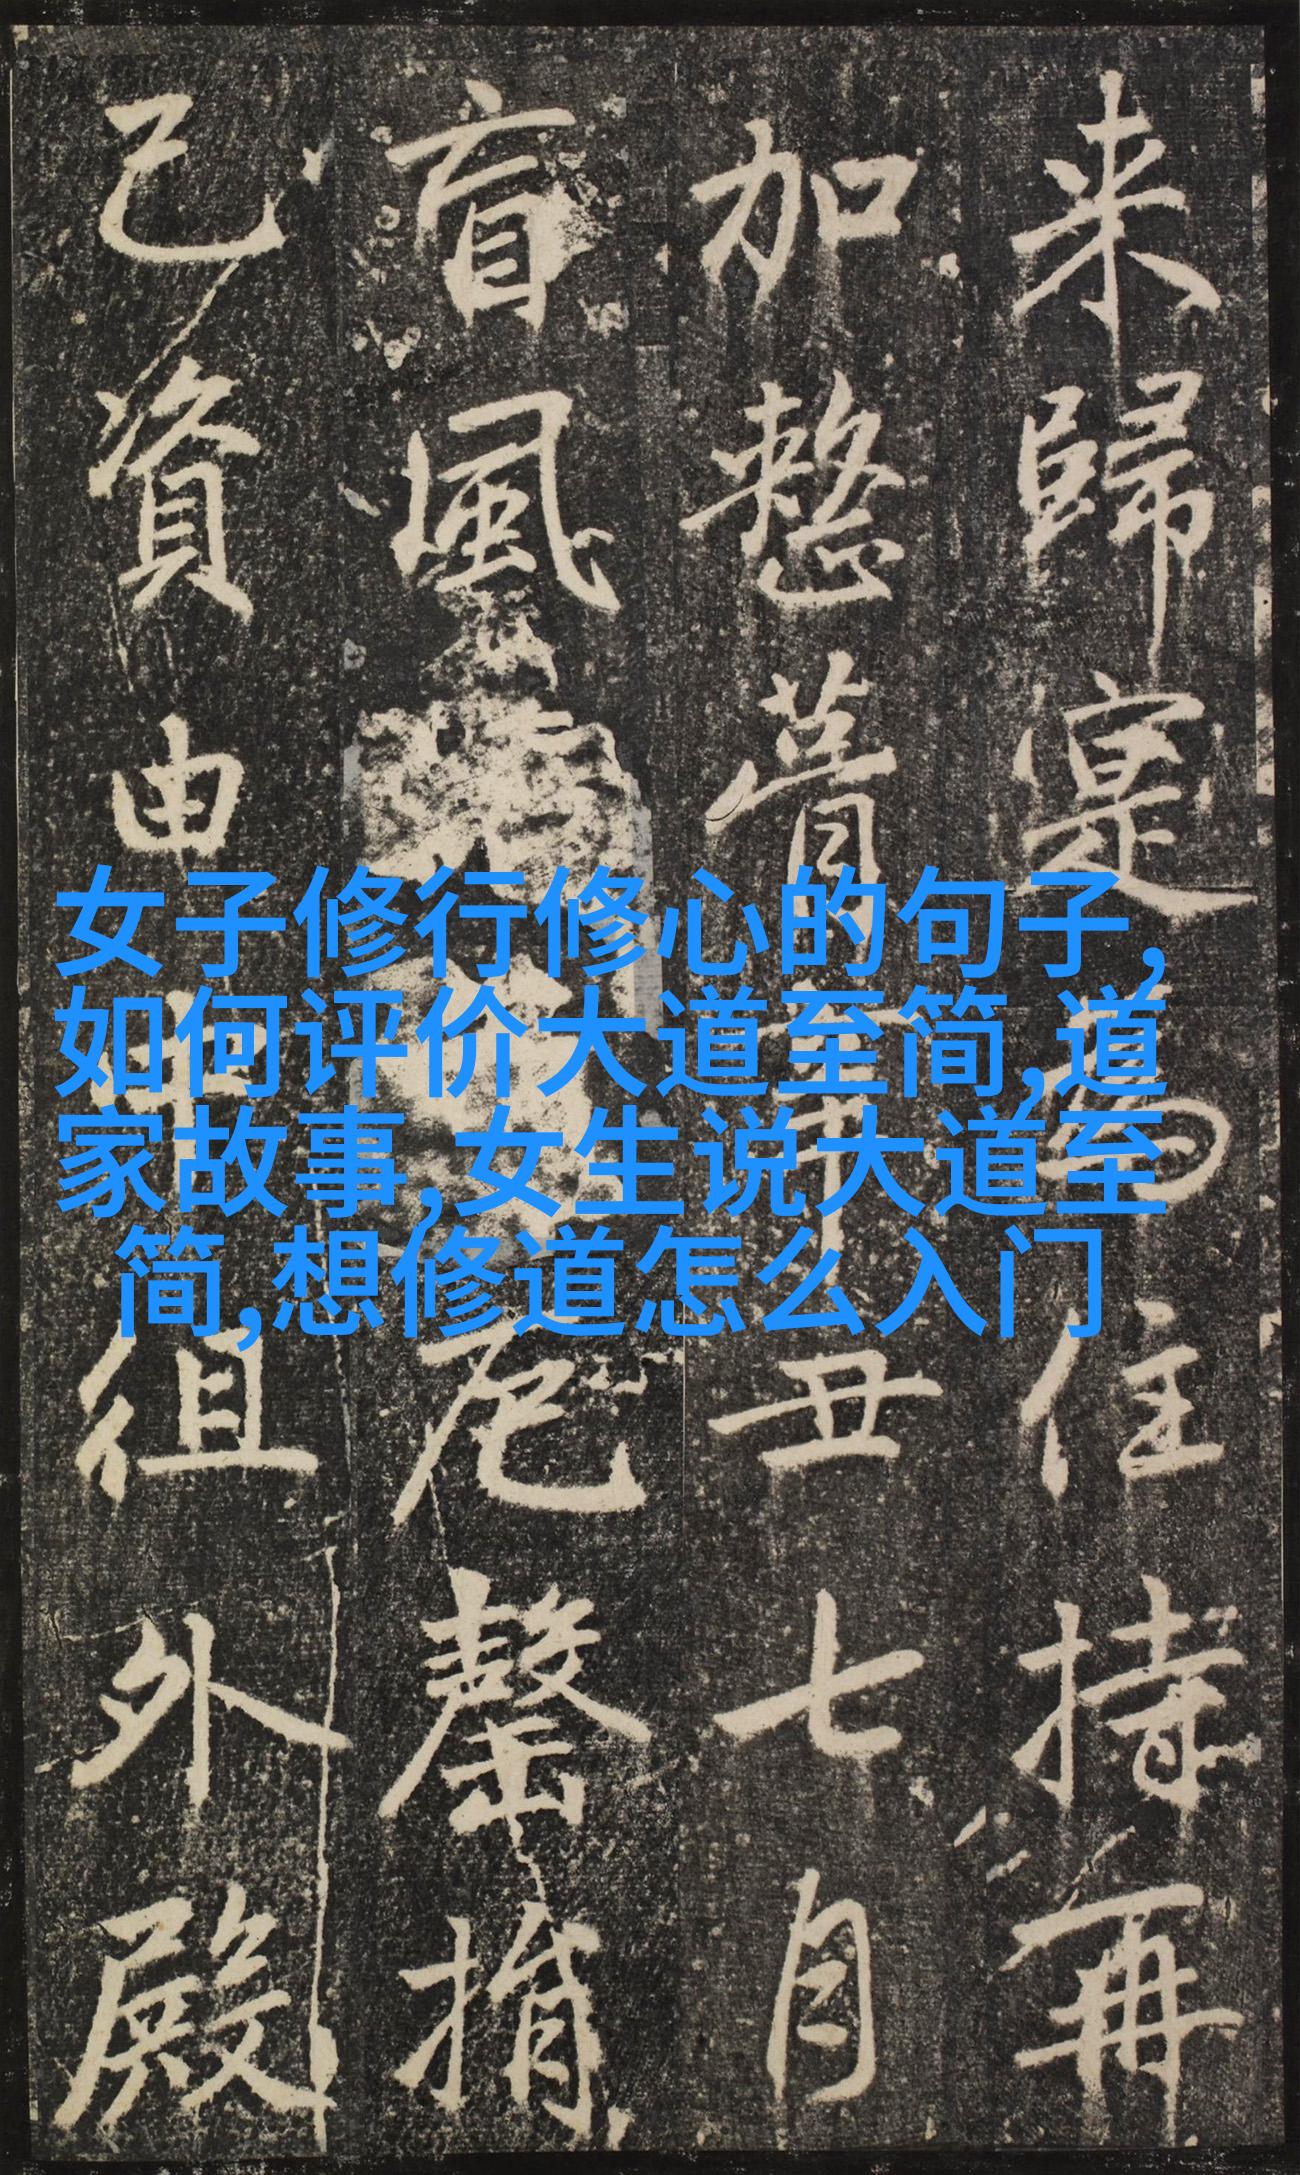 来歸寔為住持再
加整葺辛丑七月
盲風尼罄捐
己資由中徂外殿
女子修行修心的句子,
如何评价大道至简,道
家故事,女生说大道至
简,想修道怎么入门